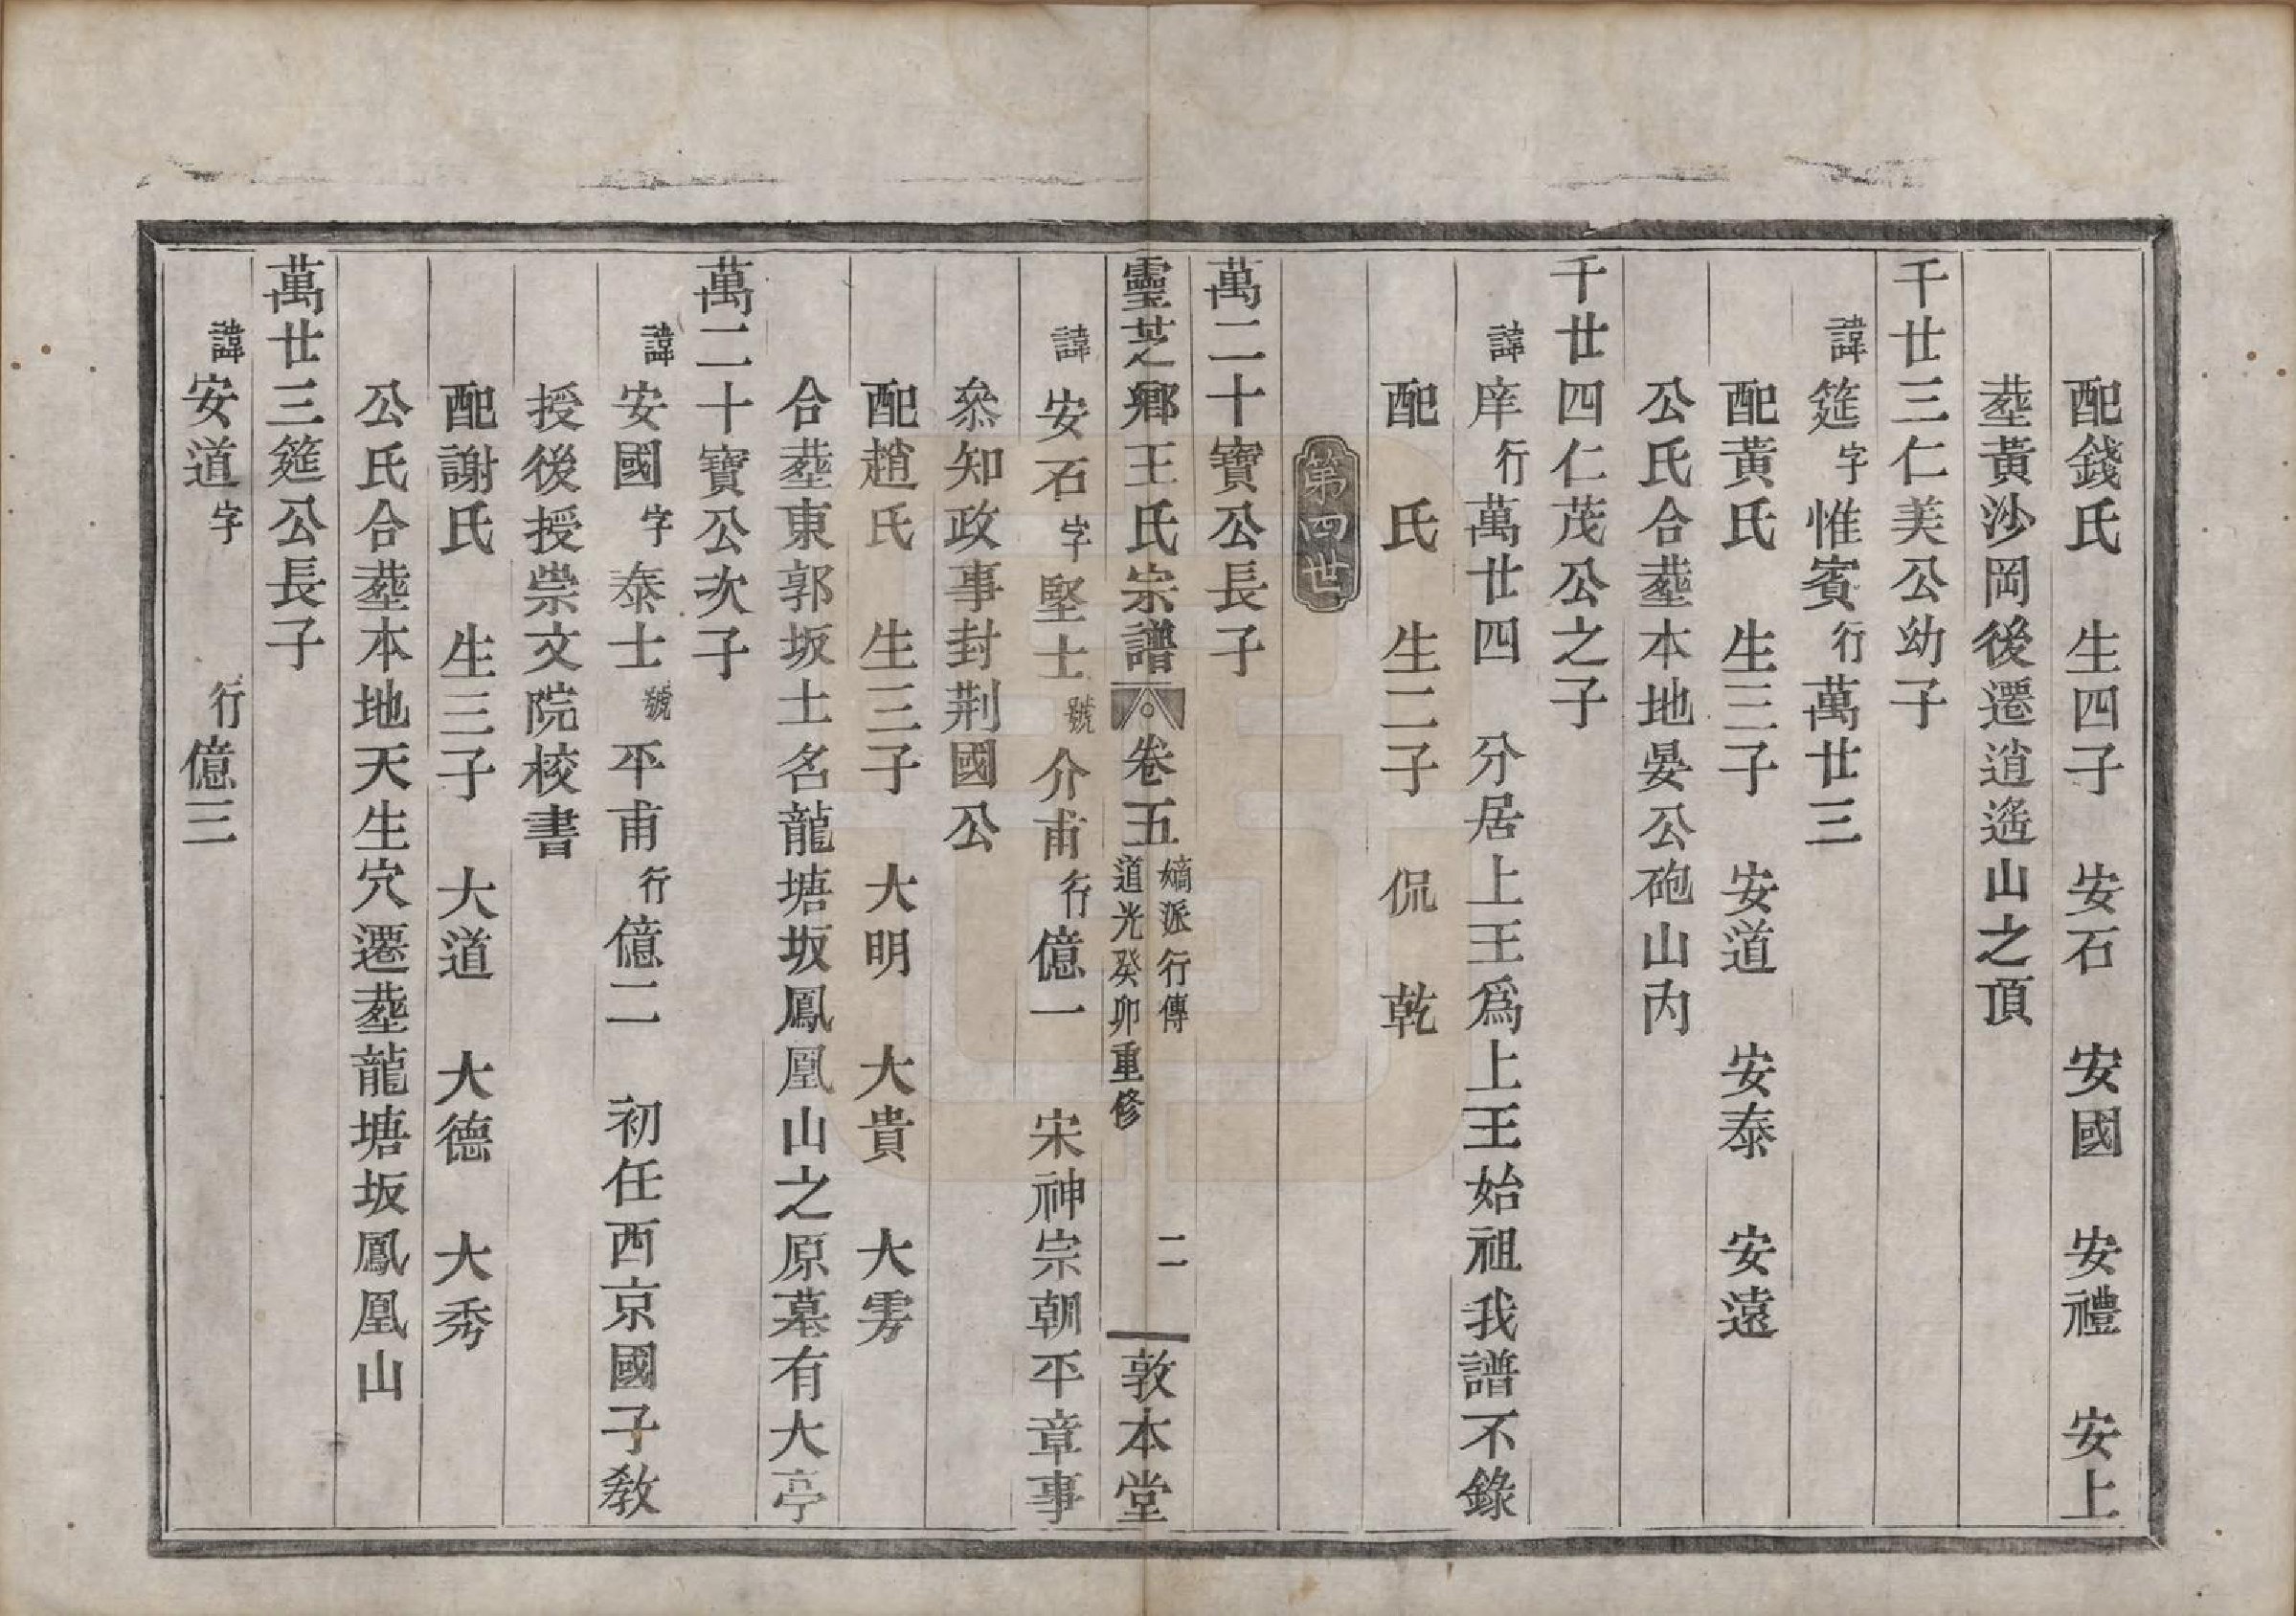 配錢氏　生四子　安石　安國　安禮　安上
塟黃沙岡後遷逍遙山之頂
千廿三仁美公幼子
諱筵字惟賓行萬廿三
配黃氏　生三子　安道　安泰　安遠
公氏合塟本地晏公砲山內
千廿四仁茂公之子
諱庠行萬廿四　分居上王爲上王始祖我譜不錄
配　氏　生二子　侃　乾
第四世
萬二十寶公長子
靈芝鄉王氏宗譜　卷五　嫡派行傳　道光癸卯重修　二　敦本堂
諱安石字堅士號介甫行億一　宋神宗朝平章事
叅知政事封荆國公
配趙氏　生三子　大明　大貴　大雱
合塟東郭坂土名龍塘坂鳳凰山之原墓有大亭
萬二十寶公次子
諱安國字泰士號平甫行億二　初任西京國子敎
授後授崇文院校書
配謝氏　生三子　大道　大德　大秀
公氏合塟本地天生穴遷塟龍塘坂鳳凰山
萬廿三筵公長子
諱安道字　行億三